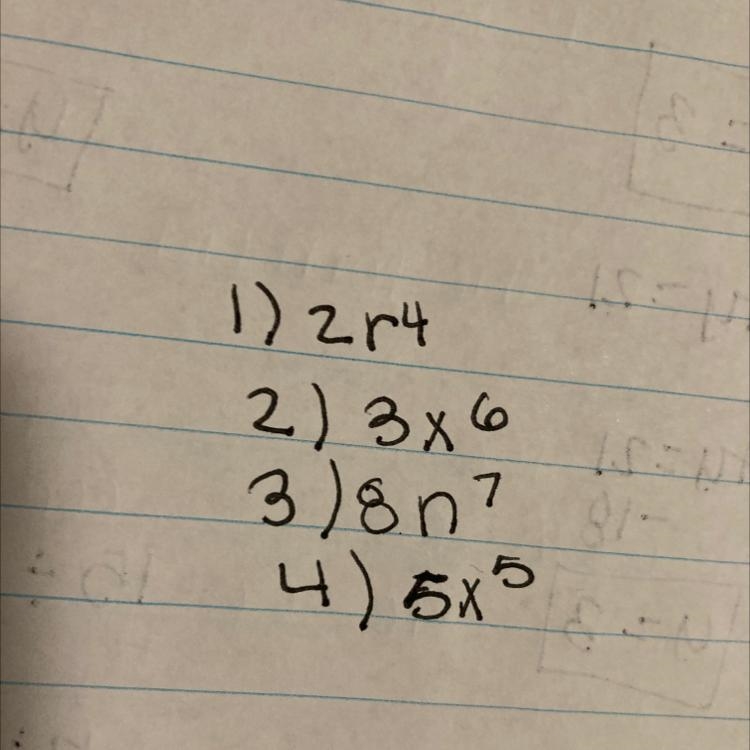 1) 2r⁴
2) 3x⁶
3) 8n⁷
4) 5x⁵